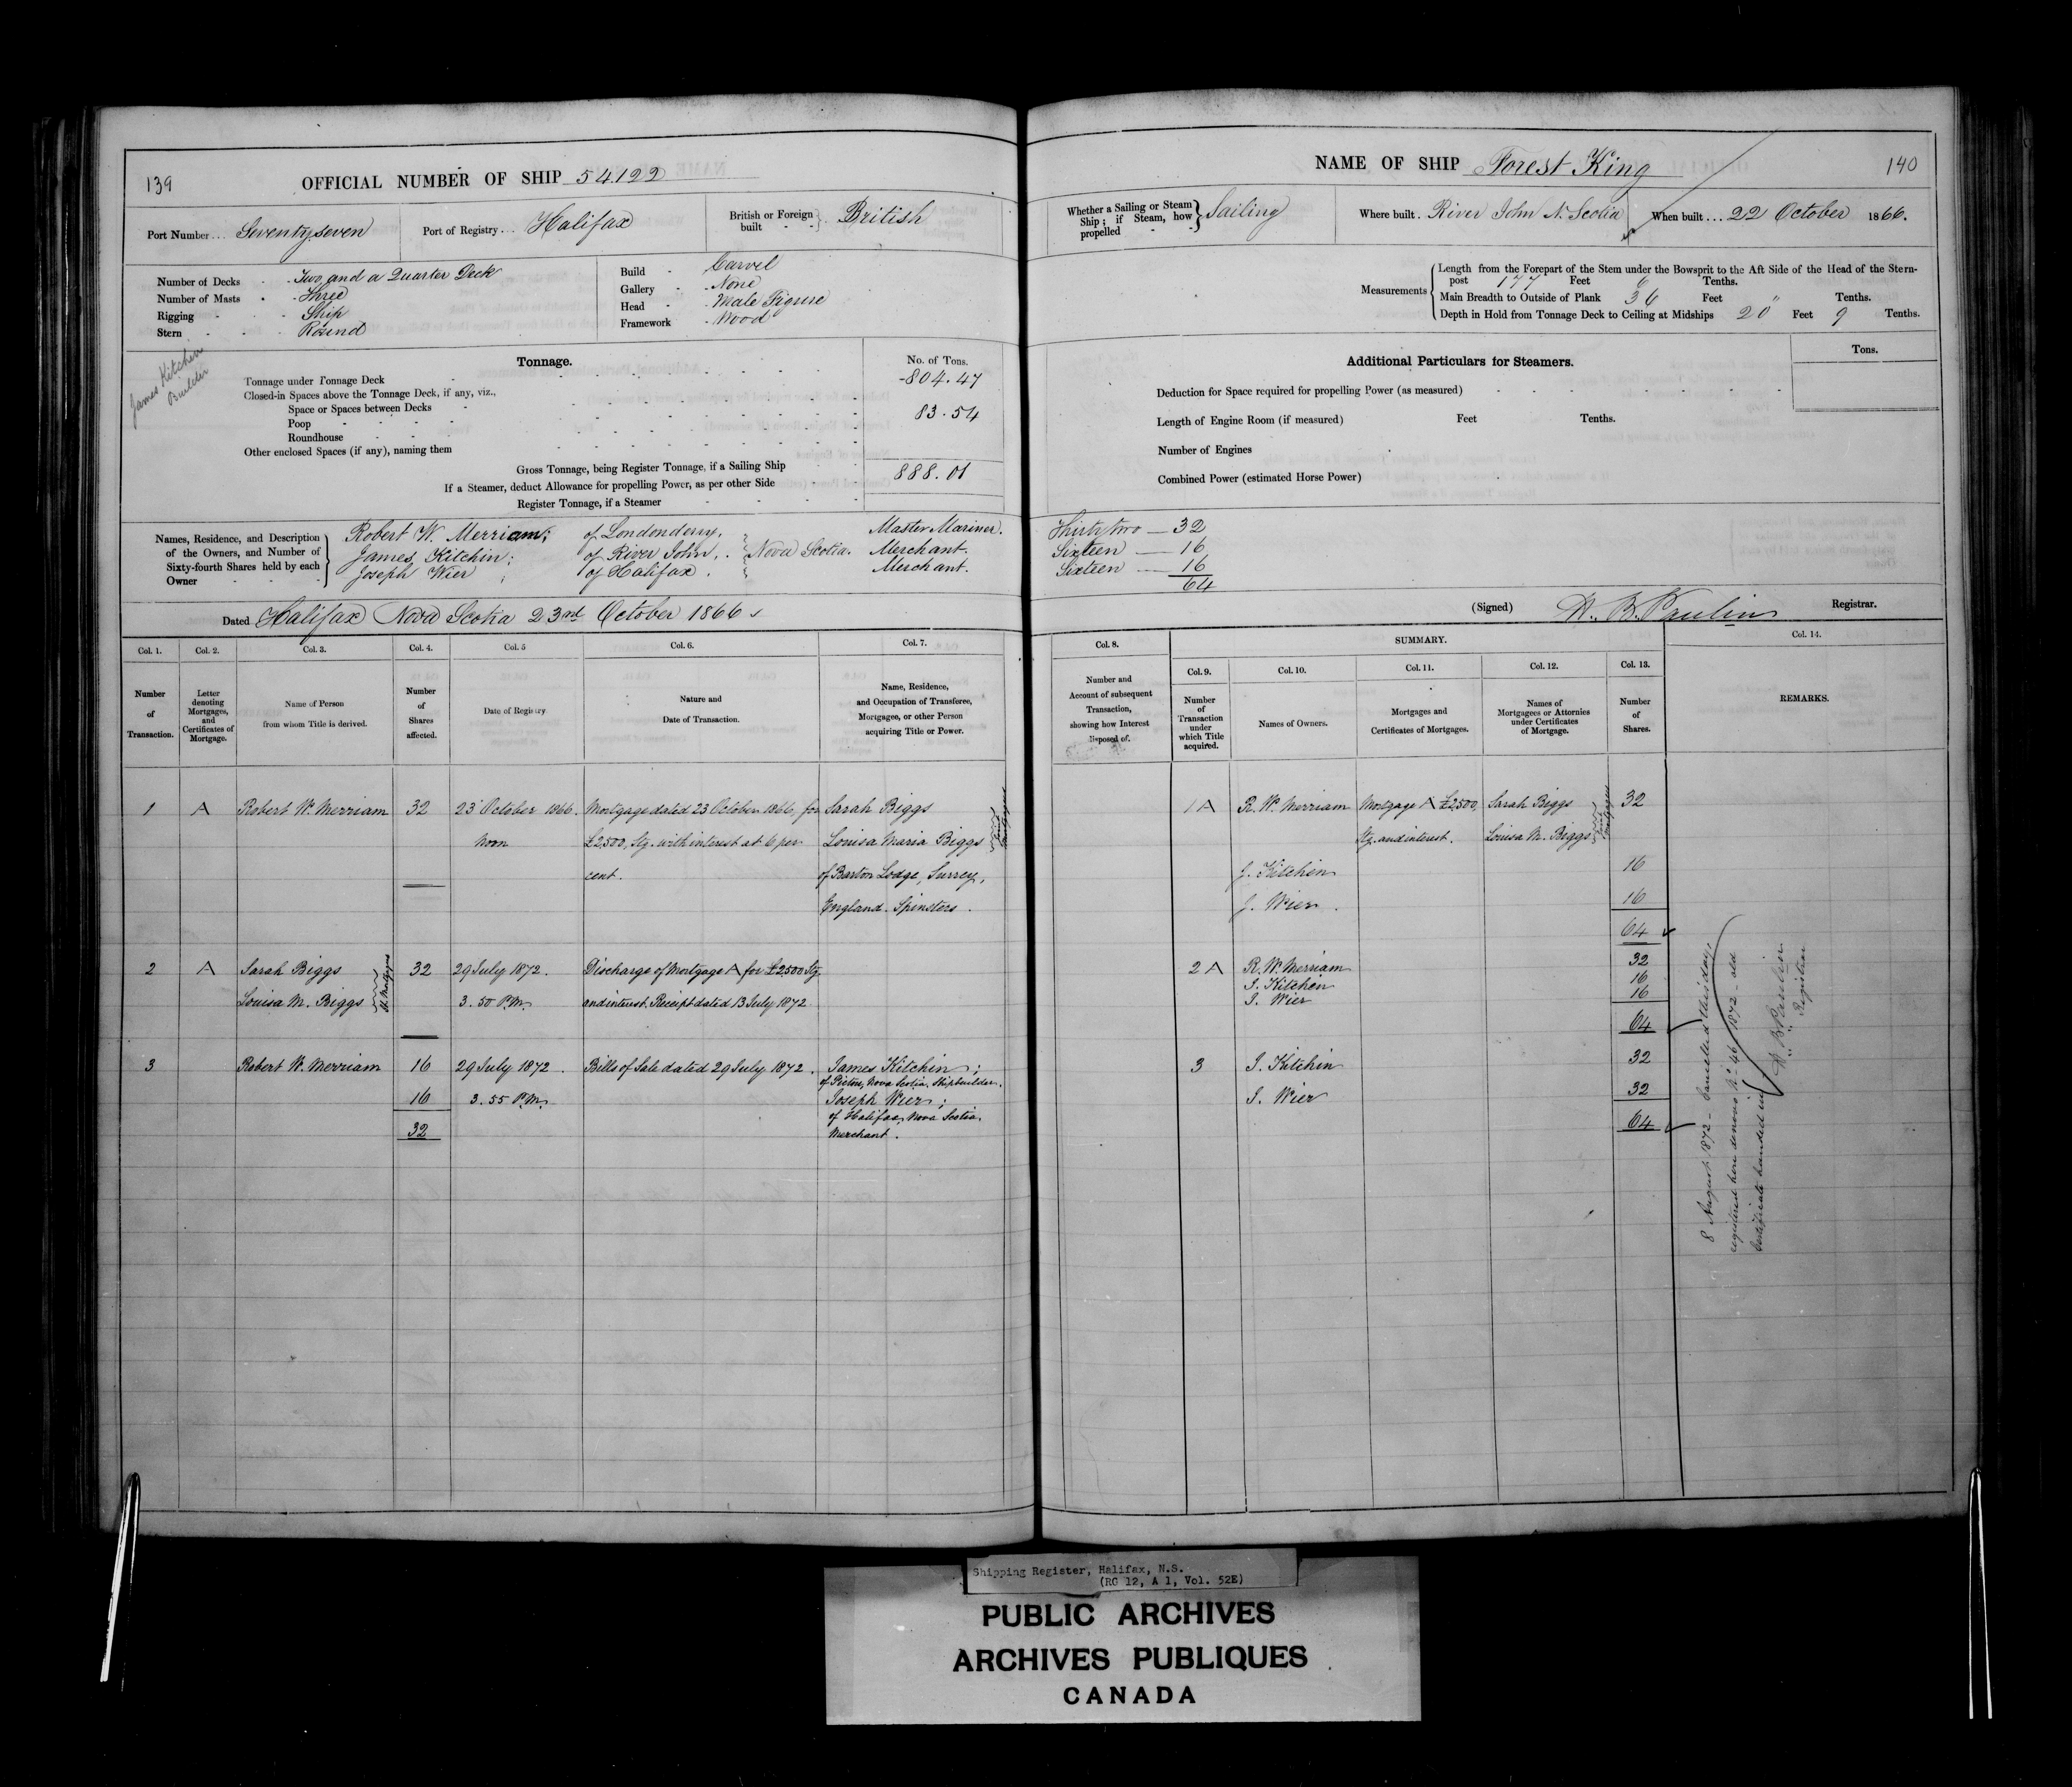 139
OFFICIAL NUMBER OF SHIP 54.122
Port Number... Seventy seven
Port of Registry... Halifax
British or Foreign built - - } British
Number of Decks - - Two and a Quarter Deck
Number of Masts - - Three
Rigging - - - Ship
Stern - - - Round
Build - Carvel
Gallery - None
Head - Male Figure
Framework - Wood
James Kitchen
Builder
Tonnage.
No. of Tons.
Tonnage under Tonnage Deck - 804.47
Closed-in Spaces above the Tonnage Deck, if any, viz.,
Space or Spaces between Decks - 83.54
Poop - - - -
Roundhouse - -
Other enclosed Spaces (if any), naming them
Gross Tonnage, being Register Tonnage, if a Sailing Ship 888.01
If a Steamer, deduct Allowance for propelling Power, as per other Side
Register Tonnage, if a Steamer
Names, Residence, and Description of the Owners, and Number of Sixty-fourth Shares held by each Owner - - -
Robert W. Merriam; of Londonderry, Master Mariner.
James Kitchin; of River John, } Nova Scotia. Merchant.
Joseph Wier ; of Halifax. Merchant.
Dated Halifax Nova Scotia 23rd October 1866
Col. 1. Col. 2. Col. 3. Col. 4. Col. 5 Col. 6. Col. 7.
Number of Transaction.
Letter denoting Mortgages, and Certificates of Mortgage.
Name of Person from whom Title is derived.
Number of Shares affected.
Date of Registry
Nature and Date of Transaction.
Name, Residence, and Occupation of Transferee, Mortgagee, or other Person acquiring Title or Power.
1 A Robert W. Merriam 32 23 October 1866. Mortgage dated 23 October 1866, for Sarah Biggs
Noon £2,500, Stg. with interest at 6 per Louisa Maria Biggs
Joint Mortgagees
cent. of Barton Lodge, Surrey,
England. Spinsters.
2 A Sarah Biggs 32 29 July 1872. Discharge of Mortgage A for £2500 Stg
Louisa M. Biggs 3.50 P.M. and interest. Receipt dated 13 July 1872
Jt. Mortgagees
3 Robert W. Merriam 16 29 July 1872. Bills of Sale dated 29 July 1872. James Kitchin;
of Pictou, Nova Scotia, Shipbuilder.
16 3.55 P.M. Joseph Wier;
of Halifax, Nova Scotia.
32 Merchant.
NAME OF SHIP Forest King
140
Whether a Sailing or Steam Ship; if Steam, how propelled - - } Sailing
Where built. River John N. Scotia
When built... 22 October 1866.
Measurements
Length from the Forepart of the Stem under the Bowsprit to the Aft Side of the Head of the Stern-
post 177 Feet 6 Tenths.
Main Breadth to Outside of Plank 36 Feet " Tenths.
Depth in Hold from Tonnage Deck to Ceiling at Midships 20 Feet 9 Tenths.
Additional Particulars for Steamers.
Tons.
Deduction for Space required for propelling Power (as measured)
Length of Engine Room (if measured) Feet Tenths.
Number of Engines
Combined Power (estimated Horse Power)
Thirty two — 32
Sixteen — 16
Sixteen — 16
64
(Signed) H. B. Paulin Registrar.
Col. 8. SUMMARY. Col. 14.
Col. 9. Col. 10. Col. 11. Col. 12. Col. 13.
Number and Account of subsequent Transaction, showing how Interest disposed of.
Number of Transaction under which Title acquired.
Names of Owners.
Mortgages and Certificates of Mortgages.
Names of Mortgagees or Attornies under Certificates of Mortgage.
Number of Shares.
REMARKS.
1 A R. W. Merriam Mortgage A £2,500, Sarah Biggs 32
Stg. and interest. Louisa M. Biggs
Joint Mortgagees
J. Kitchin 16
J. Wier. 16
64
2 A R. W. Merriam 32
J. Kitchin 16
J. Wier 16
64
3 J. Kitchin 32
J. Wier 32
64
8 August 1872 - Cancelled this day,
registered here denovo No. 46 1872 - old
Certificate handed in
H B Paulin
Registrar
Shipping Register, Halifax, N.S.
(RG 12, A 1, Vol. 52E)
PUBLIC ARCHIVES
ARCHIVES PUBLIQUES
CANADA